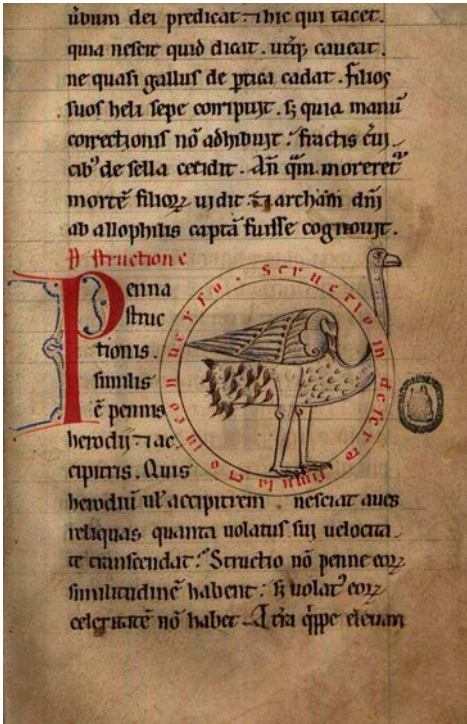 ūbum dei predicat. ⁊ hic qui tacet.
quia nescit quid dicat. utq; caueat.
ne quasi gallus de ꝑtica cadat. filios
suos heli sepe corripuit. s; quia manū
correctionis nō adhibuit. fractis c̄ui
cibꝰ de sella cecidit. An̄ qm̄ moreretᷣ
mortē filioꝝ uidit. ⁊ archam dn̄i
ab allophilis captā fuisse cognouit.
structione
Penna
struc
tionis.
similis
ē pennis
herodii ⁊ ac
cipitris. Quis
herodiū ul' accipitrem nesciat aues
reliquas quanta uolatus sui uelocita
te transcendat? Structio nō penne eoꝝ
similitudinē habent: s; uolatꝰ eoꝝ
celeritatē nō habet. q̄ppe eleuari
Structio in deserto in conuerso